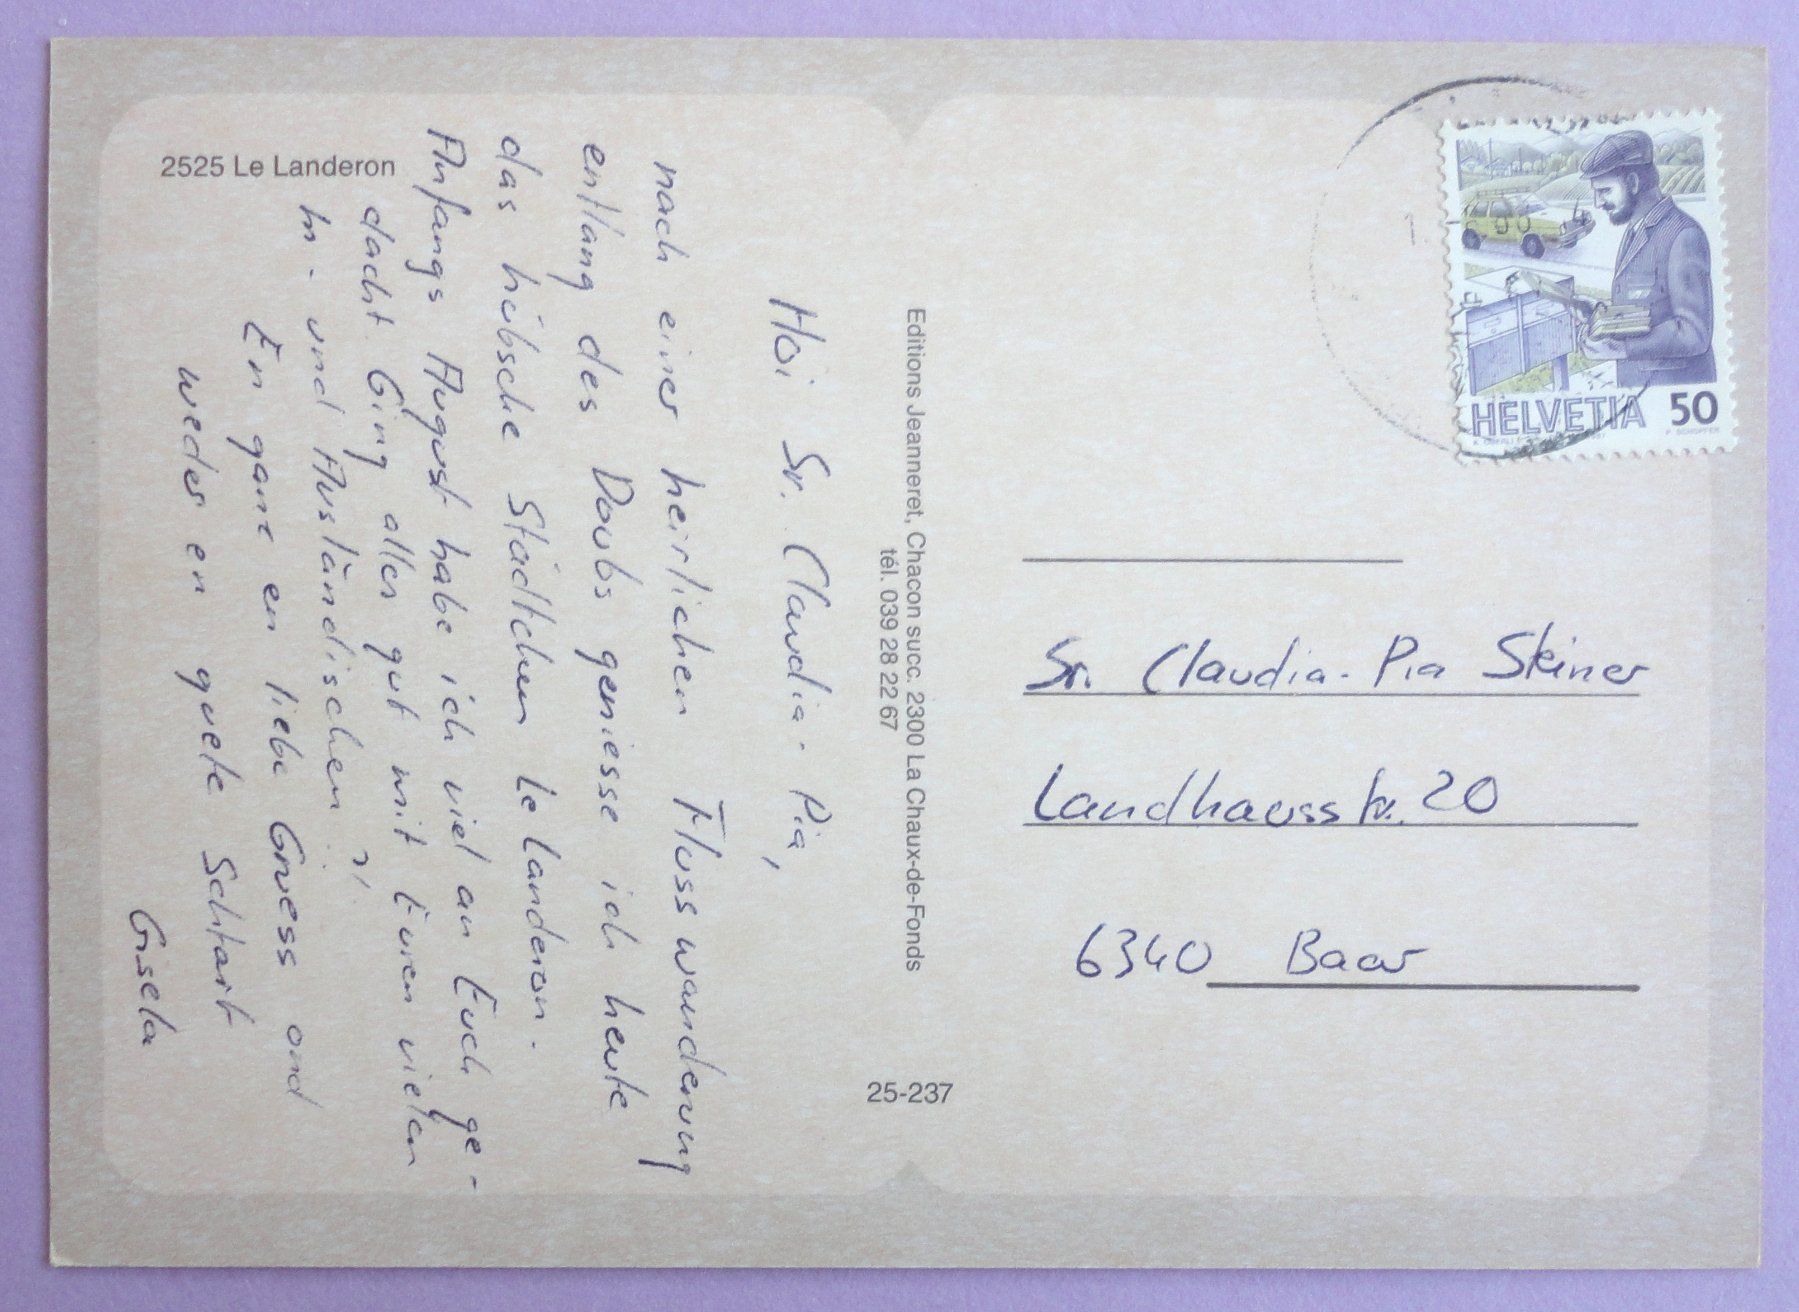 2525 Le Landeron
Hoi Sr. Claudia-Pia,
nach einer herrlichen Flusswanderung
entlang des Doubs geniesse ich heute
das hübsche Städtchen Le Landeron.
Anfangs August habe ich viel an Euch ge-
dacht. Ging alles gut mit Euren vielen
In- und Ausländischen?!
En ganz en liebe Gruess ond
weder en guete Schtart
Gisela
Editions Jeanneret, Chacon succ. 2300 La Chaux-de-Fonds
tél. 039 28 22 67
25-237
HELVETIA 50
Sr. Claudia-Pia Steiner
Landhausstr. 20
6340 Baar